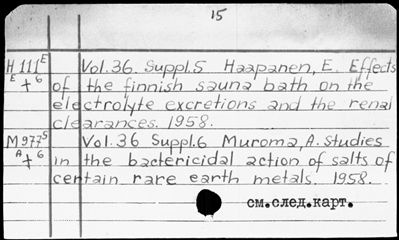 15
H 111 E Vol. 36. Suppl. 5 Haapanen, E. Effects
E + 6 of the finnish sauna bath on the
electrolyte excretions and the renal
clearances. 1958.
M 977 S Vol. 36 Suppl. 6 Muroma, A. Studies
A + 6 in the bactericidal action of salts of
certain rare earth metals. 1958.
см.след.карт.